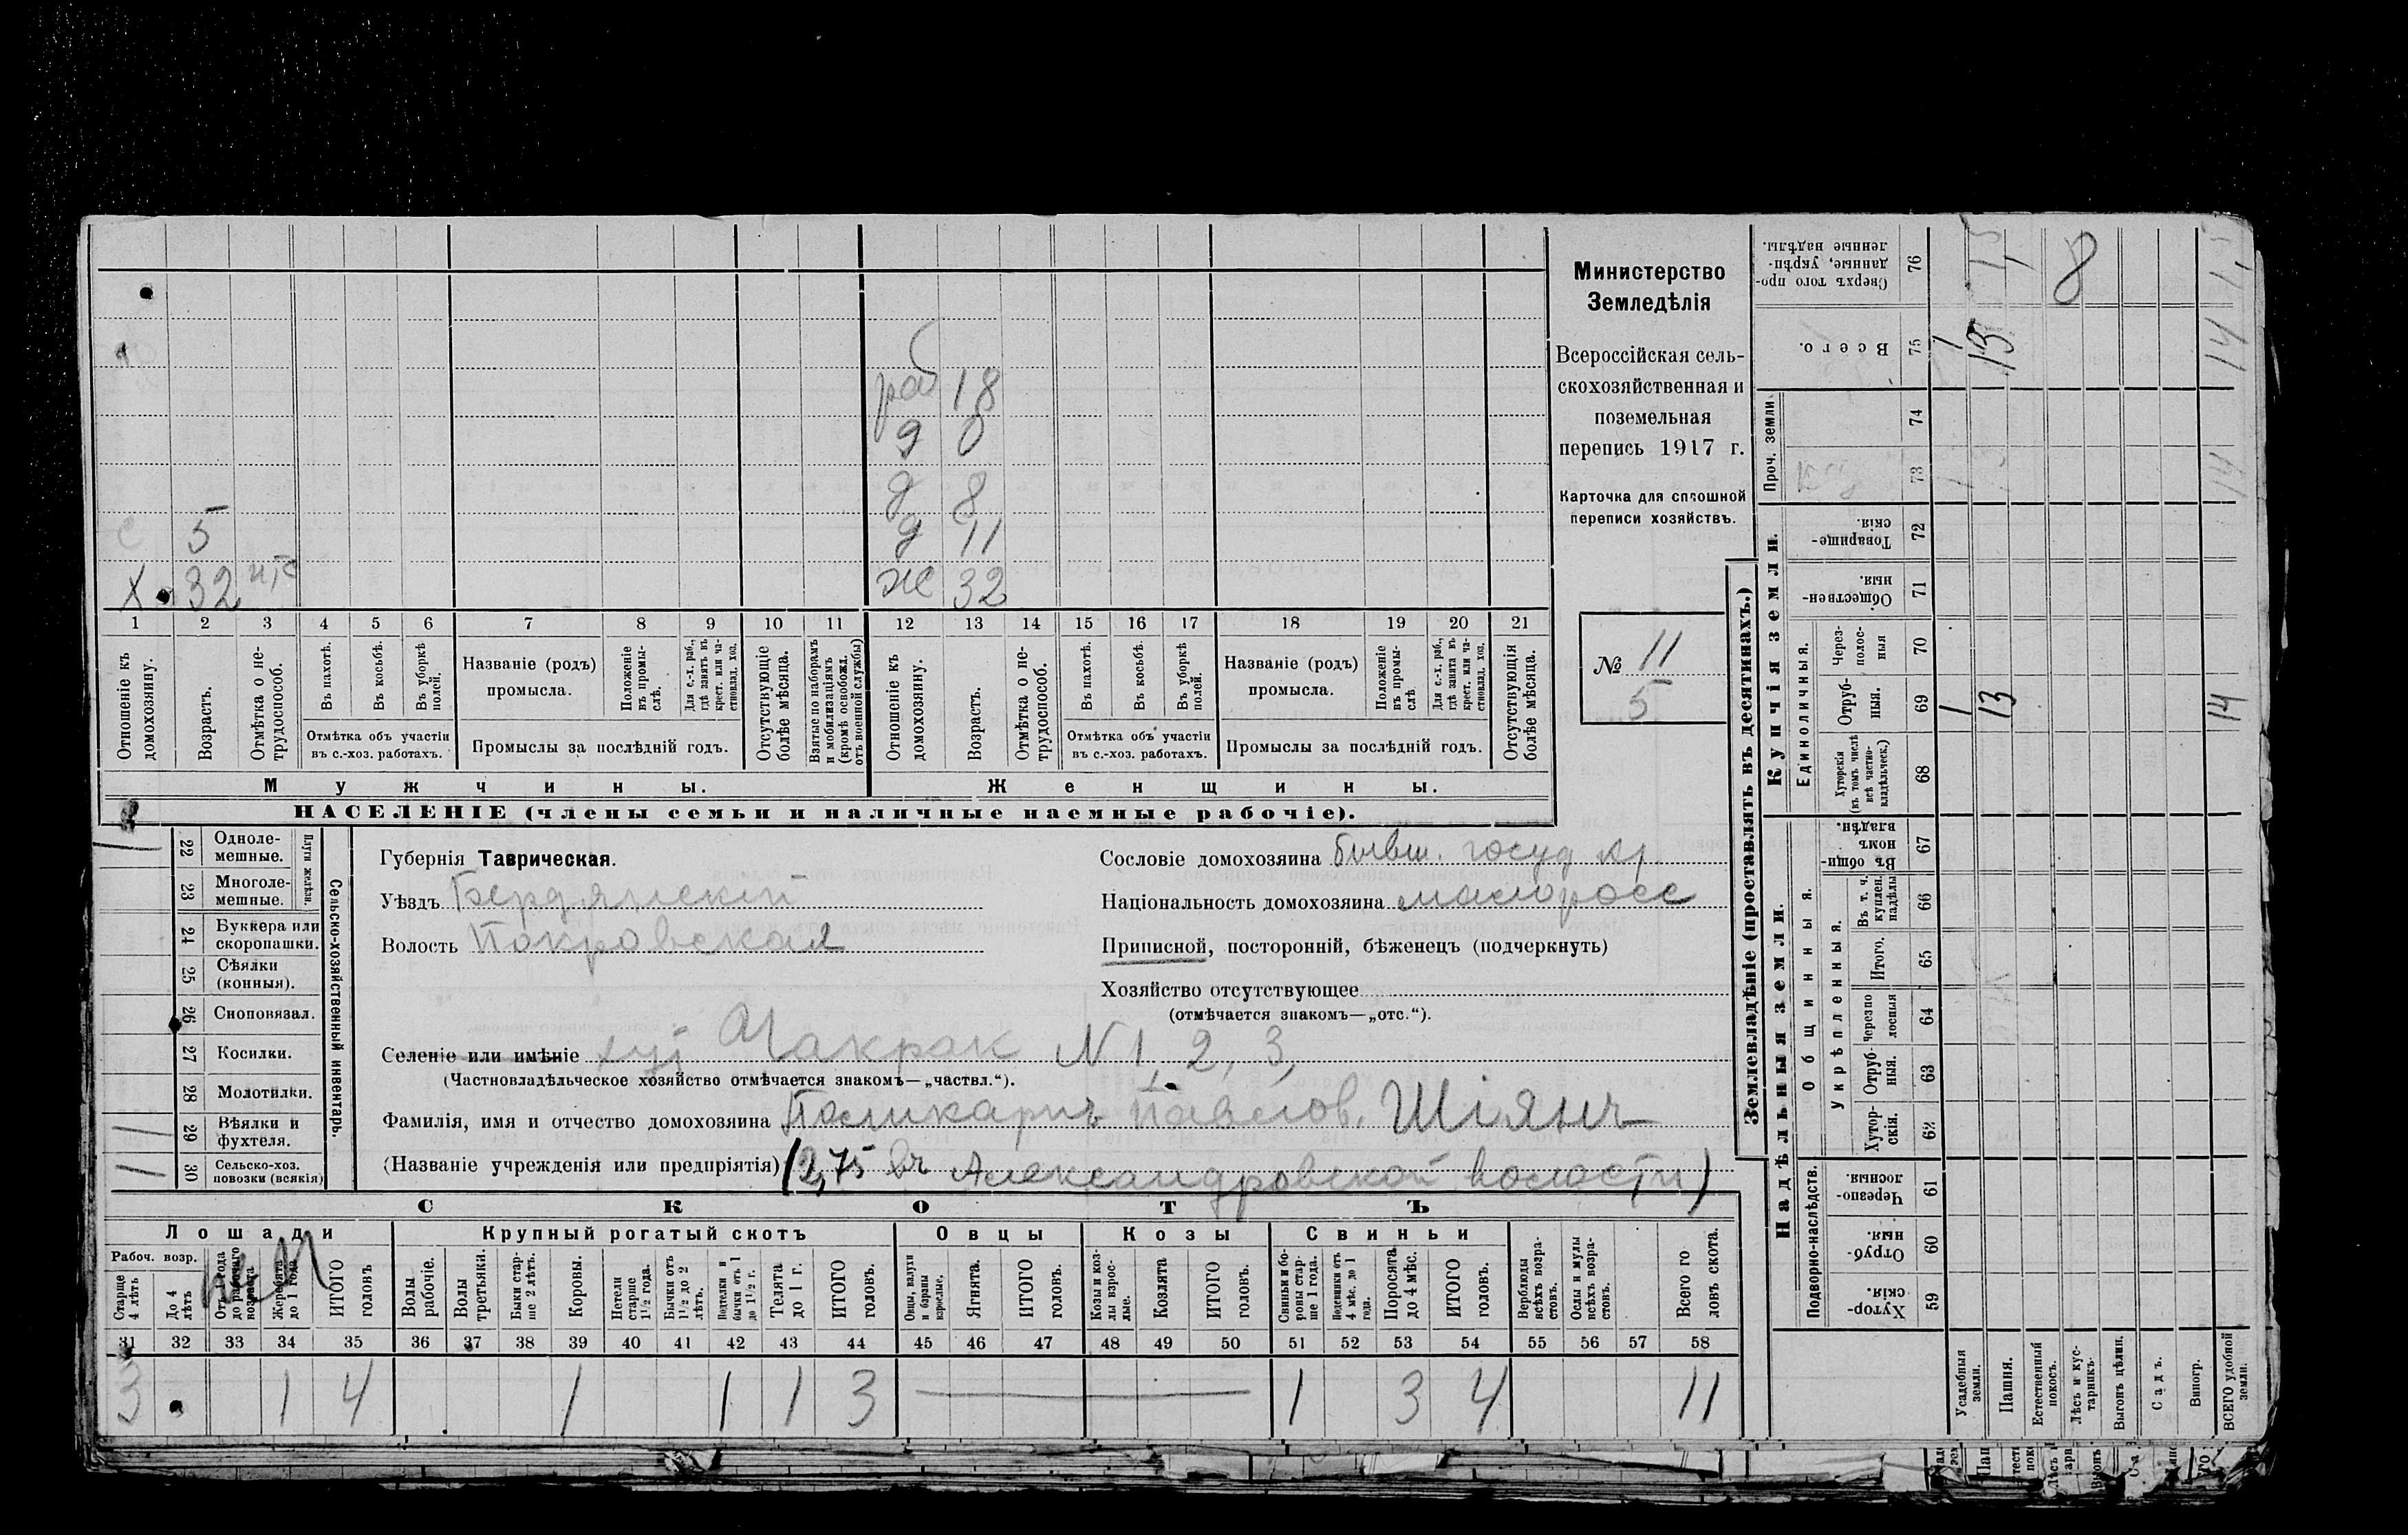 Министерство
Земледѣлія
Всероссійская сель-
скохозяйственная и
поземельная
перепись 1917 г.
Карточка для сплошной
переписи хозяйствъ.
№ 11
5
раб 18
д 0
д 8
с 5 д 11
х. 32 ж 32
1 2 3 4 5 6 7 8 9 10 11 12 13 14 15 16 17 18 19 20 21
Отношеніе къ домохозяину.
Возрастъ.
Отмѣтка о не-трудоспособ.
Въ пахотѣ.
Въ косьбѣ.
Въ уборкѣ полей.
Отмѣтка объ участіи
въ с.-хоз. работахъ.
Названіе (родъ)
промысла.
Положеніе въ промы-слѣ.
Для с.-х. раб., гдѣ занятъ въ крест. или ча-стновлад. хоз.
Промыслы за послѣдній годъ.
Отсутствующіе болѣе мѣсяца.
Взятые по наборамъ и мобилизаціямъ (кромѣ освобожд. отъ военной службы)
Отношеніе къ домохозяину.
Возрастъ.
Отмѣтка о не-трудоспособ.
Въ пахотѣ.
Въ косьбѣ.
Въ уборкѣ полей.
Отмѣтка объ участіи
въ с.-хоз. работахъ.
Названіе (родъ)
промысла.
Положеніе въ промы-слѣ
Для с.-х. раб., гдѣ занята въ крест. или ча-стновлад. хоз.
Промыслы за послѣдній годъ.
Отсутствующія болѣе мѣсяца.
Мужчины.
Женщины.
НАСЕЛЕНІЕ (члены семьи и наличные наемные рабочіе).
Сельско-хозяйственный инвентарь.
Плуги желѣзн.
1 22 Одноле-мешные.
23 Многоле-мешные.
24 Буккера или скоропашки.
25 Сѣялки (конныя).
26 Сноповязал.
27 Косилки.
28 Молотилки.
1 29 Вѣялки и фухтеля.
1 30 Сельско-хоз. повозки (всякія)
Губернія Таврическая.
Уѣздъ Бердянскій
Волость Покровская
Сословіе домохозяина бывш. госуд кр
Національность домохозяина малоросс
Приписной, посторонній, бѣженецъ (подчеркнуть)
Хозяйство отсутствующее
(отмѣчается знакомъ—„отс.“).
Селеніе или имѣніе хут Чакрак N 1, 2, 3,
(Частновладѣльческое хозяйство отмѣчается знакомъ—„частвл.“).
Фамилія, имя и отчество домохозяина Поликарпъ Павлов. Шіянъ
(Названіе учрежденія или предпріятія) (2,75 въ Александровской волости)
СКОТЪ
Лошади
Крупный рогатый скотъ
Овцы
Козы
Свиньи
Рабоч. возр.
Старше 4 лѣтъ
До 4 лѣтъ
Отъ года до рабочаго возраста
Жеребята до 1 года
ИТОГО головъ
Волы рабочіе.
Волы третьяки.
Быки стар-ше 2 лѣтъ.
Коровы.
Нетели старше 1½ года.
Бычки отъ 1½ до 2 лѣтъ.
Подтелки и бычки отъ 1 до 1½ г.
Телята до 1 г.
ИТОГО головъ.
Овцы, валухи и бараны взрослые.
Ягнята.
ИТОГО головъ.
Козы и коз-лы взрос-лые.
Козлята
ИТОГО головъ.
Свиньи и бо-ровы стар-ше 1 года.
Подсвинки отъ 4 мѣс. до 1 года.
Поросята до 4 мѣс.
ИТОГО головъ.
Верблюды всѣхъ возра-стовъ.
Ослы и мулы всѣхъ возра-стовъ.
Всего го ловъ скота.
31 32 33 34 35 36 37 38 39 40 41 42 43 44 45 46 47 48 49 50 51 52 53 54 55 56 57 58
3 1 4 1 1 1 3 1 3 4 11
Землевладѣніе (проставлять въ десятинахъ.)
Купчія земли.
Надѣльныя земли.
Проч. земли
Единоличныя.
Общинныя.
Укрѣпленныя.
Подворно-наслѣдств.
Сверхъ того про-данные, укрѣп-ленные надѣлы. 76
Всего. 75
74
73
Товарище-скія. 72
Обществен-ныя. 71
Через-полос-ныя 70
Отруб-ныя. 69
Хуторскія (въ томъ числѣ всѣ частно-владѣльческ.) 68
Въ общи-номъ владѣн. 67
Въ т. ч. куплен. надѣлы 66
Итого. 65
Черезпо лосныя 64
Отруб-ныя. 63
Хутор-скія. 62
Черезпо-лосныя. 61
Отруб-ныя. 60
Хутор-скія. 59
Усадебныя земли.
Пашня.
Естественный покосъ.
Лѣсъ и кус-тарникъ.
Выгонъ цѣлин.
Садъ.
Виногр.
ВСЕГО удобной земли.
1 13 14
1 13 14
8